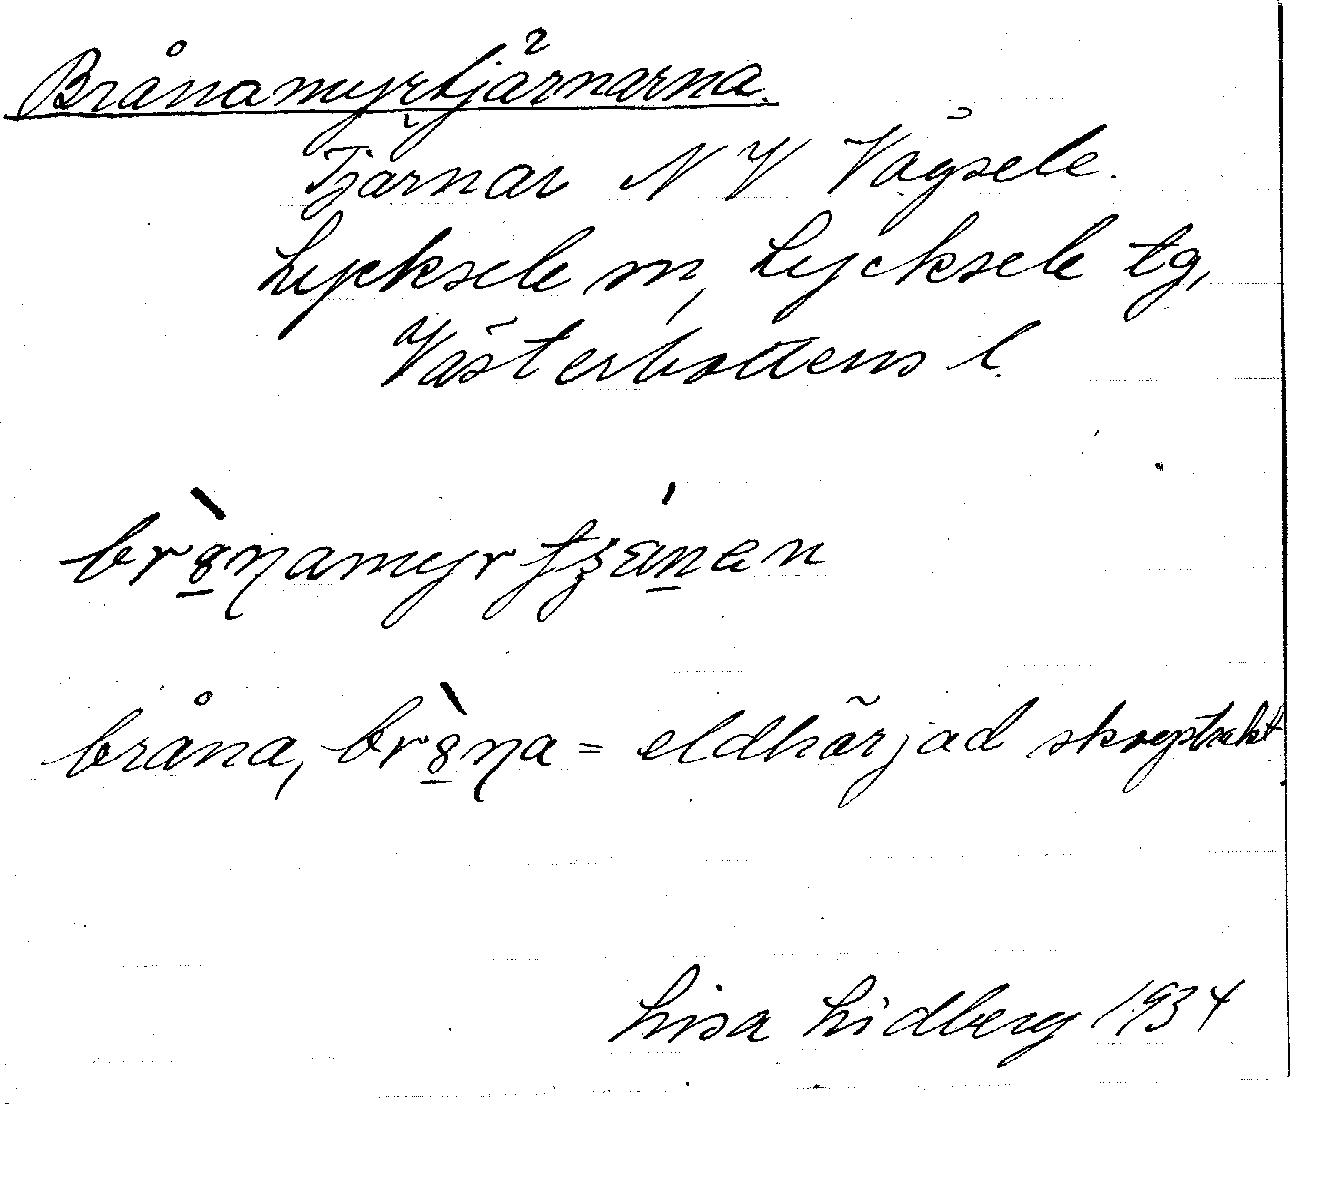 Brånamyrtjärnarna.
Tjärnar N V Vågsele.
Lycksele m, Lycksele tg,
Västerbottens l.
br8̲̀ŋamyr
bråna, br8̲̀ŋa = eldhärjad skogstrakt
Lisa Lidberg 1934